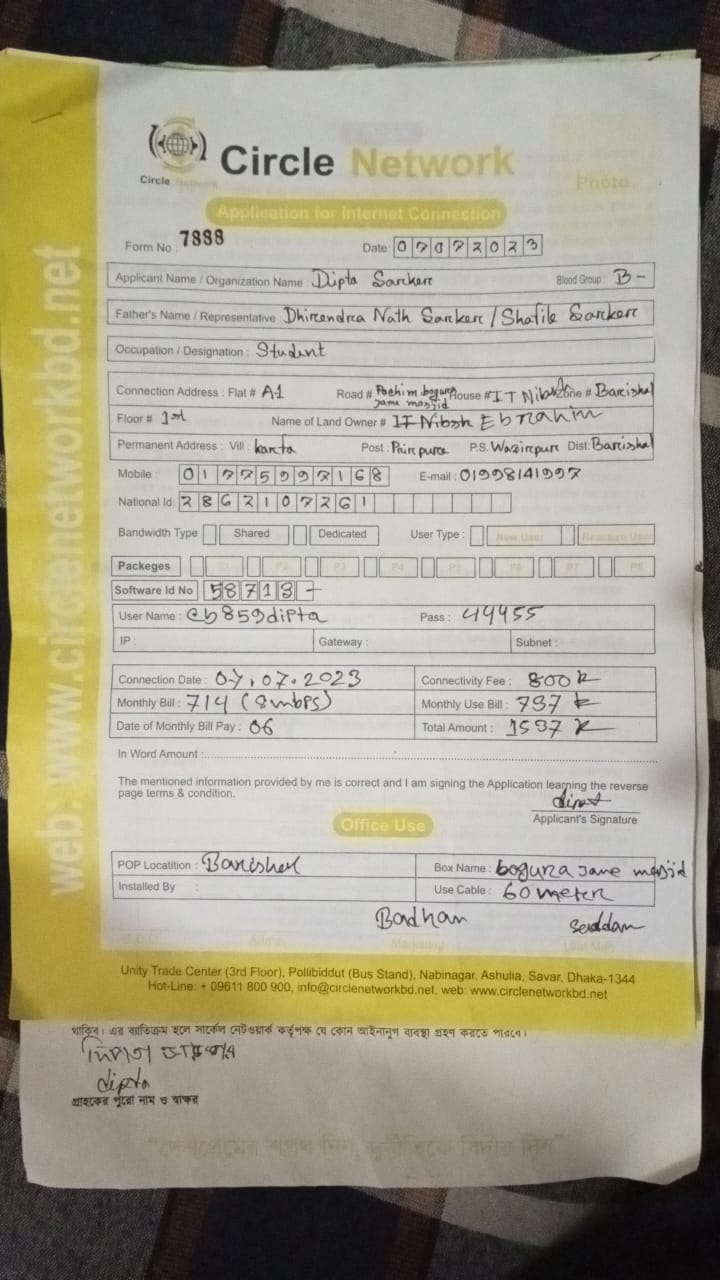 Circle Network
Circle Network
Photo
Application for Internet Connection
Form No : 7888 Date: 07072023
Applicant Name / Organization Name : Dipta Sarker Blood Group : B-
Father's Name / Representative : Dhirendra Nath Sarker / Shafile Sarker
Occupation / Designation : Student
Connection Address : Flat # A-1 Road # Pachim bogura jame masjid House # IT Zone # Barishal
Floor # 1st Name of Land Owner # IT Ebrahim
Permanent Address : Vill : karfa Post : P.S. Wazirpur Dist: Barishal
Mobile : 01775997168 E-mail : 01998141997
National Id: 2862107261
Bandwidth Type Shared Dedicated User Type : New User Reactive User
Packeges P2 P3 P4 P5 P6 P7 P8
Software Id No 58713-
User Name : cb859dipta Pass : 44455
IP : Gateway : Subnet :
Connection Date : 07.07.2023 Connectivity Fee :
Monthly Bill : 714 (8mbps) Monthly Use Bill :
Date of Monthly Bill Pay : 06 Total Amount :
In Word Amount :
The mentioned information provided by me is correct and I am signing the Application learning the reverse
page terms & condition.
Applicant's Signature
Office Use
POP Locatition : Box Name : bogura jame masjid
Installed By : Use Cable : 60 meter
Badham saddam
Marketing
Unity Trade Center (3rd Floor), Pollibiddut (Bus Stand), Nabinagar, Ashulia, Savar, Dhaka-1344
Hot-Line: + 09611 800 900, info@circlenetworkbd.net, web: www.circlenetworkbd.net
web: www.circlenetworkbd.net
থাকিব। এর ব্যতিক্রম হলে সার্কেল নেটওয়ার্ক কর্তৃপক্ষ যে কোন আইনানুগ ব্যবস্থা গ্রহণ করতে পারবে।
dipta
গ্রাহকের পুরো নাম ও স্বাক্ষর
"দেশপ্রেমের শপথ নিন, দুর্নীতিকে বিদায় দিন"